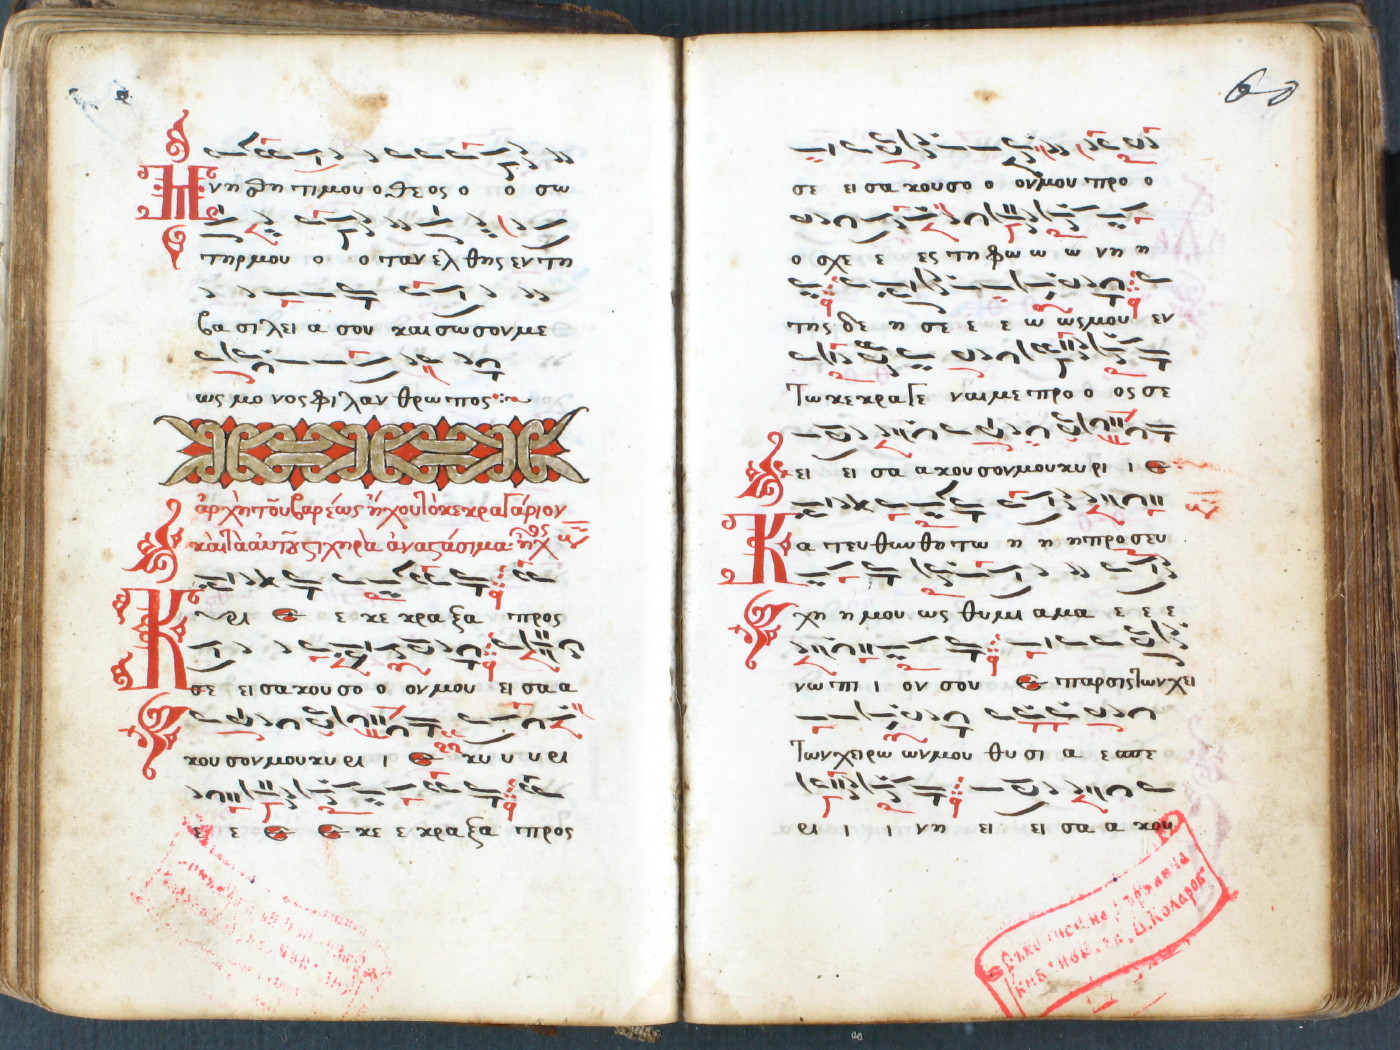 Μνηθητιμου ο θε ος ο ο σω
τηρμου ο ο ταν ελ θης εν τη
βα σι λει α σου και σωσον με
ως μο νος φι λαν θρω πος
ἀρχὴ τοῦ βαρέως ἤχου τὸ κεκραγάριον
καὶ τὰ αὐτοῦ στιχηρὰ ἀναστάσιμα· ἦχος
Κυρι ε ε κε κραξα προς
σε εισακουσο ο ον μου εισα α
κουσονμουκυ ρι ι ε κυ υ υ ρι
ε ε ε ε κε ε κραξα προς
60
σε εισα κουσο ο ονμου προ ο
ο σχε ε ες τη φω ω ω νη η
της δε η σε ε ε ω ωςμου εν
τω κεκραγε ναι με προ ο ος σε
ει εισα ακουσονμουκυρι ι ε
Κα τευθυνθητω η η ηπροσευ
χη η μου ως θυμι αμα ε ε ε
νω πι ι ον σου ε παρσιςτωνχει
τωνχειρω ωνμου θυσι α εσπε
ρι ι ι νη ει εισα α κου